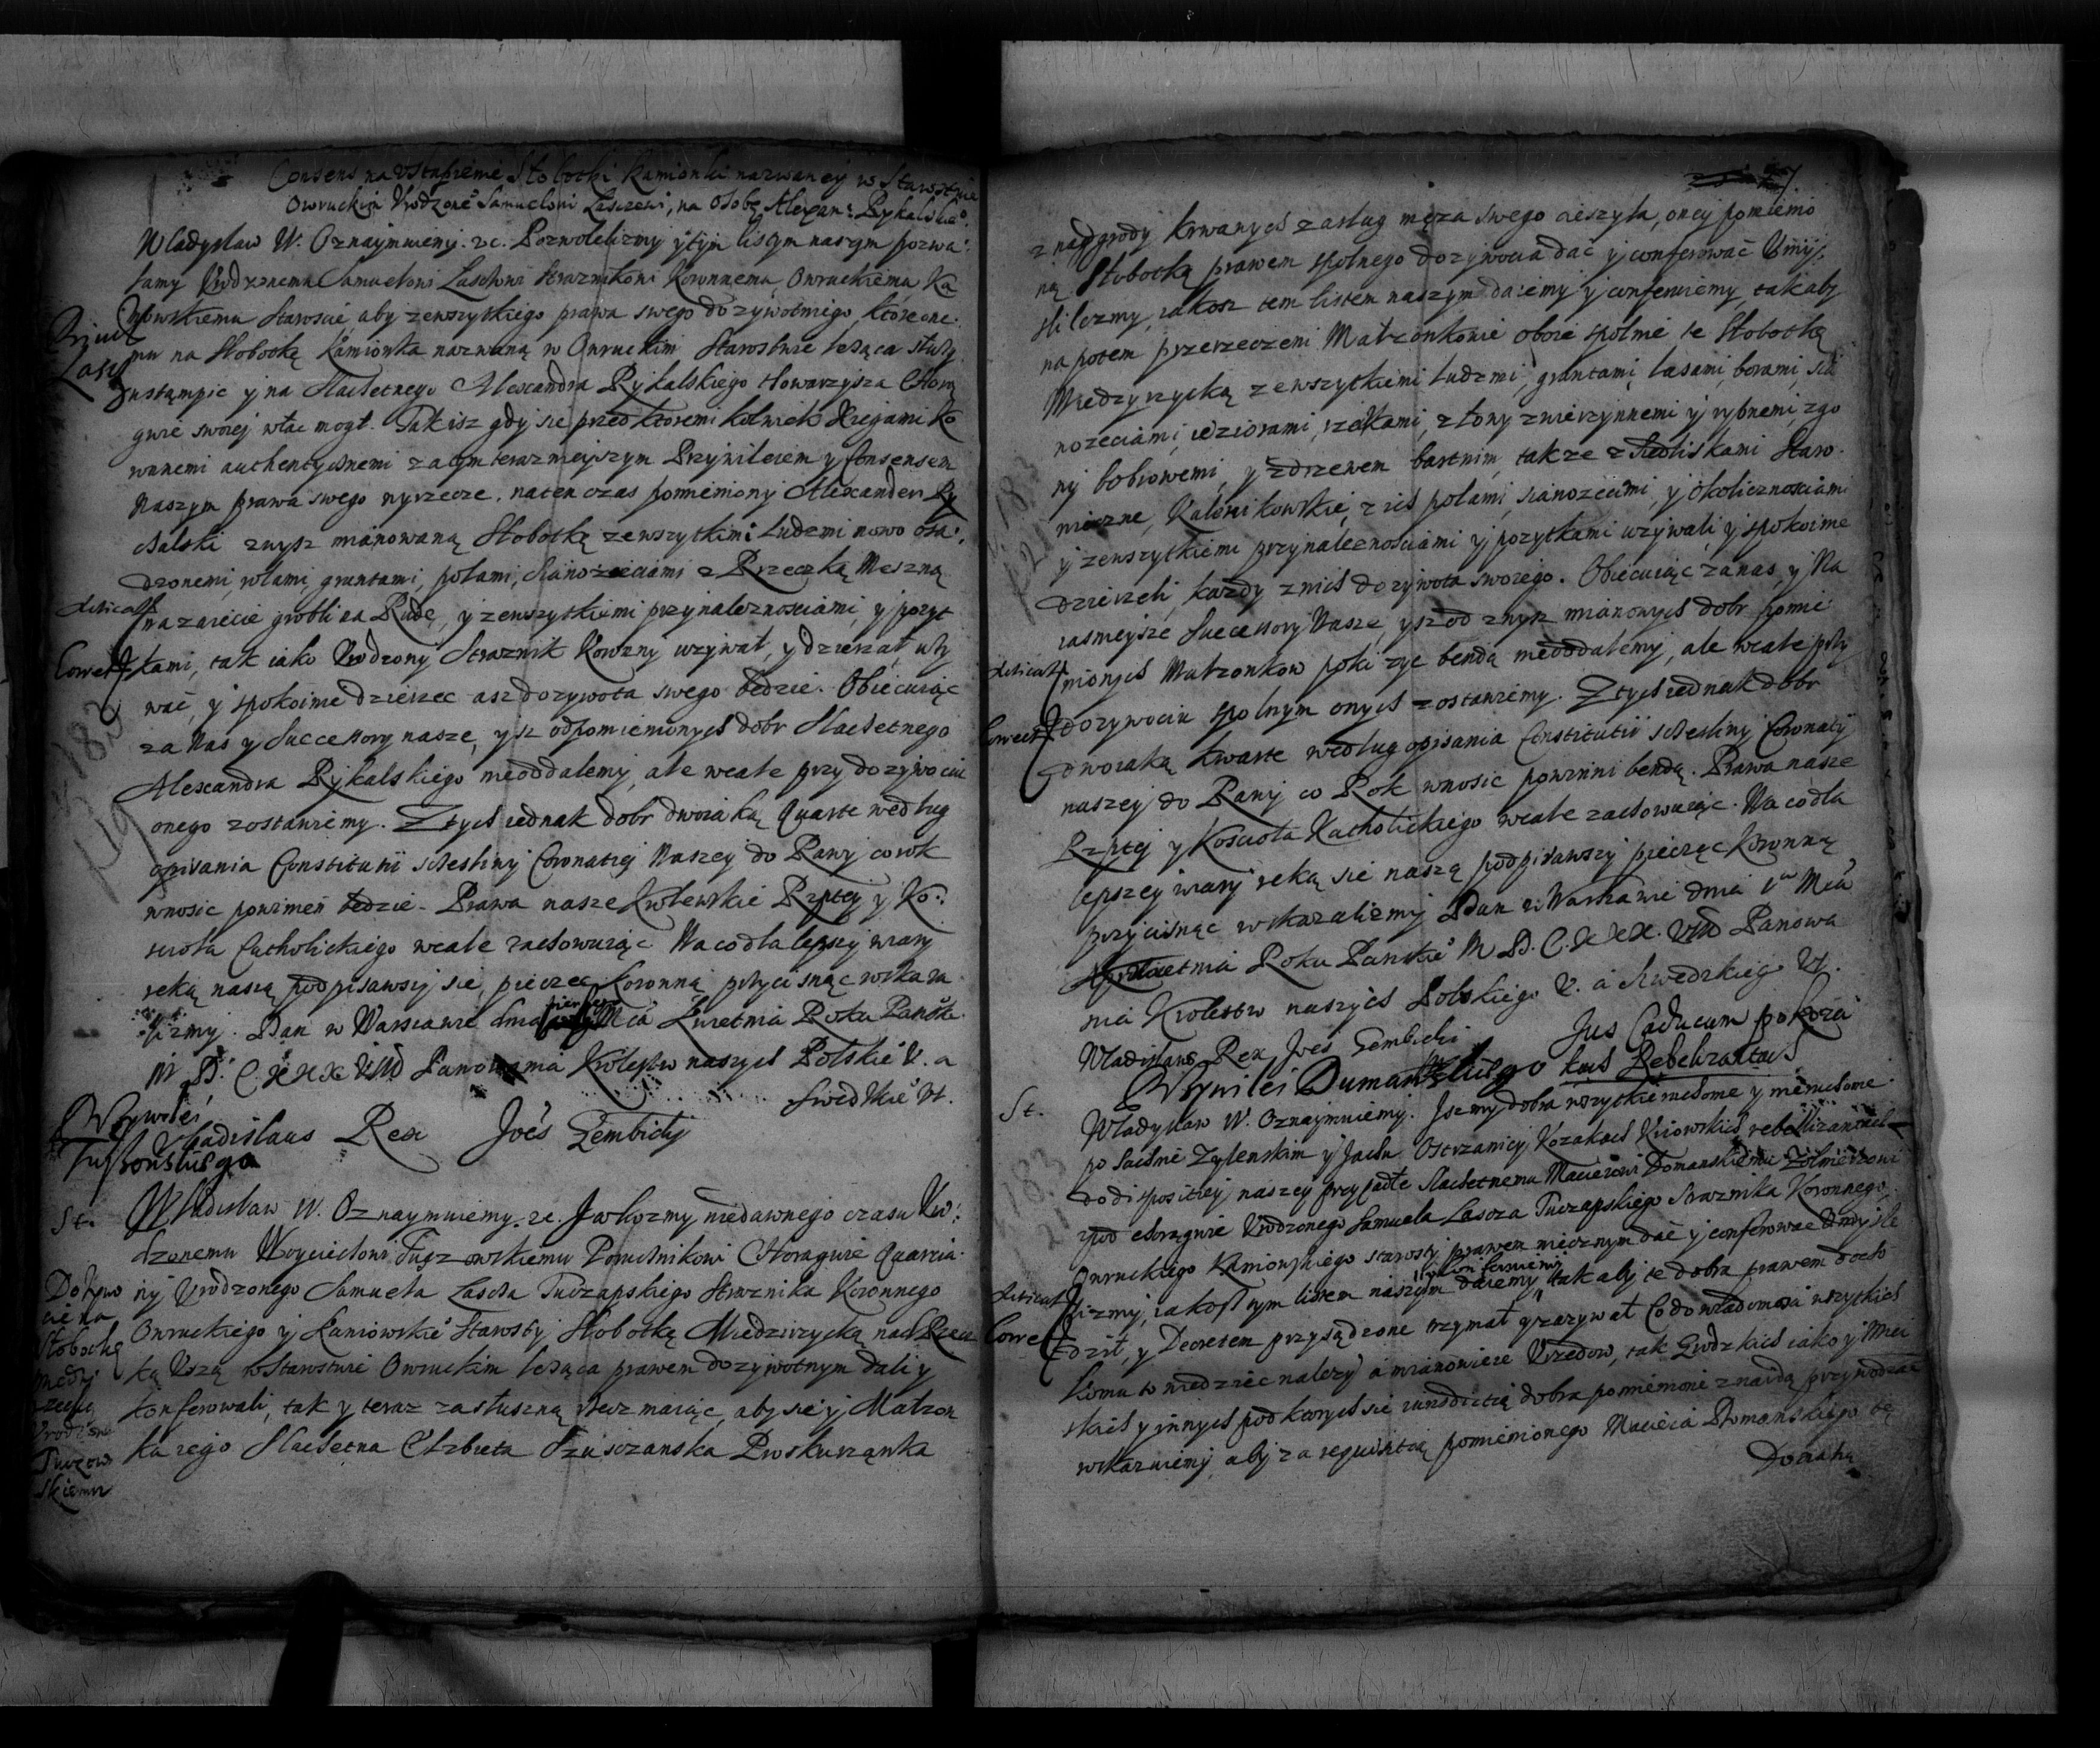 Consens na Ustąpienie Słobotki Kamionki nazwaney w Starostwie
Owruckim Urodzone° Samuelowi Laszczowi, na Osobę Alexan: Rykalskie°
Władysław IV. Oznaymuiemy. &c. Pozwolelizmy y tym listem naszym pozwa:
lamy Urodzonemu Samuelowi Laschowi Straznikowi Koronnemu, Owruckiemu Ka
niowskiemu Staroscie, aby zewszytkiego prawa swego dozywotniego, które one
mu na Słobotką Kamionka nazwaną w Owruckim Starostwie leząca słuzy
ustąmpic y na Slachetnego Alexandra Rykalskiego Towarzysza Chorą
gwie swoiej wlac mogł. Tak isz gdy się przed ktoremi kolwiek Xięgami Ko
ronnemi authentycznemi zatym terazniejszym Przywileiem y Consensem
Naszym prawa swego wyrzecze. naten czas pomieniony Alexander Ry
chalski zwysz mianowaną Słobotką zewszytkimi Ludzmi nowo osa:
dzonemi, rolami, gruntami, polami, Sianozęciami z Rzeczką Meszną
na zaiecie grobli na Rudę, y zewszytkiemi przynaleznosciami, y pozyt
kami, tak iako Urodzony Straznik Koronny uzywał, y dzierzał, uzy
wać, y spokoinie dzierzec asz dozywota swego będzie. Obiecuiąc
za Nas y Successory nasze, ysz odpomienionych dobr Slachetnego
Alexandra Rykalskiego nieoddalemy, ale wcale przy dozywociu
onego zostawiemy. Ztych iednak dobr dwoiaką Quarte według
opisania Constitutii schesliwy Coronatiej Naszey do Rawy corok
wnosic powinien będzie. Prawa nasze Krolewskie Rzptey y Ko:
sciola Catholickiego wcale zachowuiąc Na co dla lepszy wiary
ręką naszą podpisawszy się, pieczęć Koronną przycisnąc wskaza
lizmy. Dan w Warszawie dnia pierwszego Mca Kwietnia Roku Panskie°
M D. C XXX VIII Panowania Krolestw naszych Polskie° V. a
Swedzkie° VI.
Vladislaus Rex Joes Gembicky
Przywilei
Tuszowskiego
St. Władisław IV. Oznaymuiemy. &c. Jakozmy niedawnego czasu Uro:
dzonemu Woyciechowi Tuczowskiemu Porucznikowi Choragwie Quarcia
ny Urodzonego Samuela Lascha Tuczapskiego Straznika Koronnego
Owruckiego y Kaniowskie° Starosty Słobotką Miedzirzycką nad Rzecz
ką Uszą w Starostwie Owruckim leząca prawem dozywotnym dali y
konferowali, tak y teraz za słuszną rzecz maiąc, aby się y Małzon
ka iego Slachetna Elzbieta Szusczanska Proskurzanka
Dozywo
cie na
Słobotkę
Miedzy
rzecką
Urodzone
Tuczow
skiemu
z nadgrody krwawych zasług męza swego cieszyła, oney pomienio
ną Słobotką prawem spolnego dozywocia dać y conferować Umy
slilizmy, iakosz tem listem naszym daiemy y conferuiemy, tak aby
na potem przerzeczeni Malzonkowie oboie spolnie te Słobotką
Miedzyrzycką zewszytkiemi ludzmi, gruntami, lasami, borami, sia
nozęciami, ieziorami, rzekami, z łowy zwierzynnemi y rybnemi, zgo
ny bobrowemi, y z drzewem bartnim, takze z siedliskami Staro
wieczne, Kalenikowskie, z ich polami, sianozęciami, y okolicznosciami
y zewszytkiemi przynaleznosciami y pozytkami uzywali y spokoinie
dzierzeli, kazdy znich dozywota swoiego. Obiecuiąc za nas, y Na
iasnieysze Successory Nasze, ysz od zwysz mianowych dobr pomie
nionych Malzonkow poki zyc bendą nieoddalemy, ale wcale przy
dozywociu spolnym onych zostawiemy. Ztych iednak dobr
dwoiaką Kwarte według opisania Constitutii schesliwy Coronatiy
naszey do Rawy co Rok wnosic powinni bendą. Prawa nasze
Rzptey y Kosciola Katholickiego wcale zachowuiąc. Na co dla
lepszey wiary ręką się naszą podpisawszy pieczęc Koronną
przycisnąc wskazalizmy Dan w Warszawie dnia 1ma Mca
Kwietnia Roku Panskie° M D. C. XXX. VIII Panowa
nia Krolestw naszych Polskiego V. a Szwedzkiego VI.
Wladislaus Rex Joes Gembicki
Jus Caducum po Kozá
kach Rebelizantach
Przywilei Dumanskiego
St. Władysław IV. Oznaymuiemy. Jszmy dobra wszytkie ruchome y nieruchome
po Sachnie Zylenskim y Jacku Ostrzanicy Kozakach Kiiowskich rebellizantach
do dispositiey naszey przypadłe Slachetnemu Macieiowi Domanskiemu Zolnierzowi
zpod choragwie Urodzonego Samuela Lascza Tuczapskiego Straznika Koronnego
Owruckiego Kaniowskiego starosty prawem wiecznym dać y conferować Umysli
lizmy, iakosz tym listem naszym daiemy y conferuiemy, tak aby te dobra prawem docho
dził, y Decretem przysądzone trzymał y zazywał Co do wiadomosci wszytkich
komu to wiedziec nalezy a mianowicie Urzedow, tak Grodzkich iako y Miei
skich y innych pod ktorych się iurisdictią dobra pomienione znaidą przywodząc
wskazuiemy aby za requisitią pomienionego Macieia Domanskiego te
Dobra ku